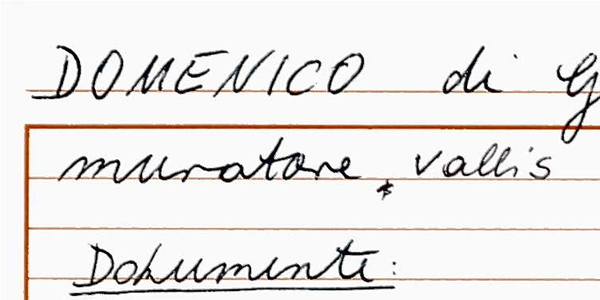 DOMENICO di G
muratore, vallis
Dokumente: